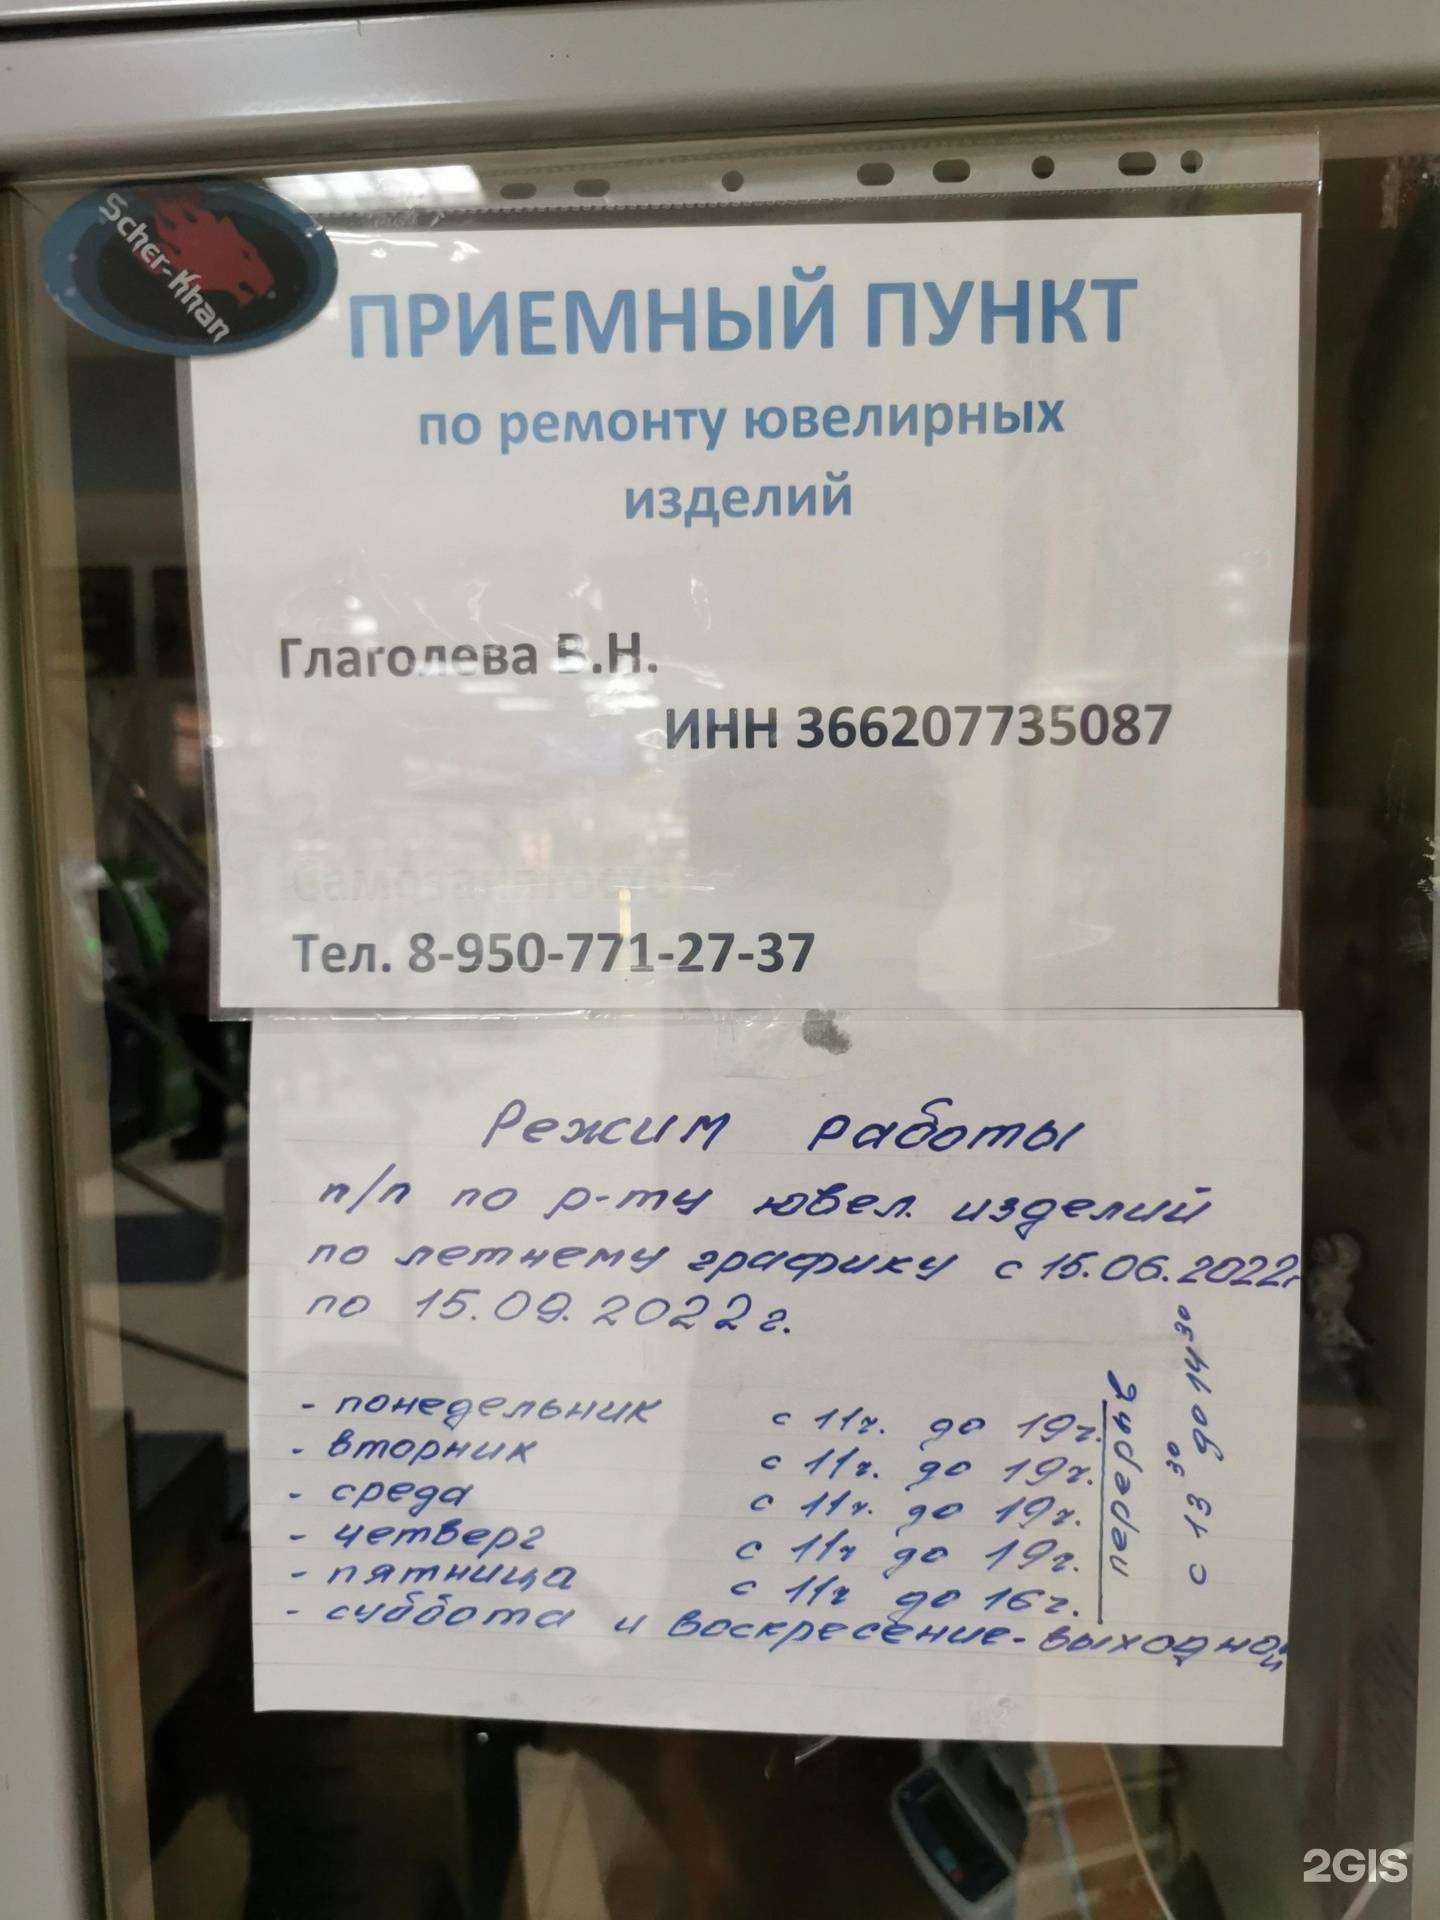 Scher-Khan
ПРИЕМНЫЙ ПУНКТ
по ремонту ювелирных
изделий
Глаголева В.Н.
ИНН 366207735087
Тел. 8-950-771-27-37
Режим работы
п/п по р-ту ювел. изделий
по летнему графику с 15.06.2022г
по 15.09.2022г.
- понедельник с 11ч. до 19ч.
- вторник с 11ч. до 19ч.
- среда с 11ч. до 19ч.
- четверг с 11ч до 19ч.
- пятница с 11ч до 16ч.
- суббота и воскресение - выходной
перерыв
с 13 30 до 14 30
2GIS